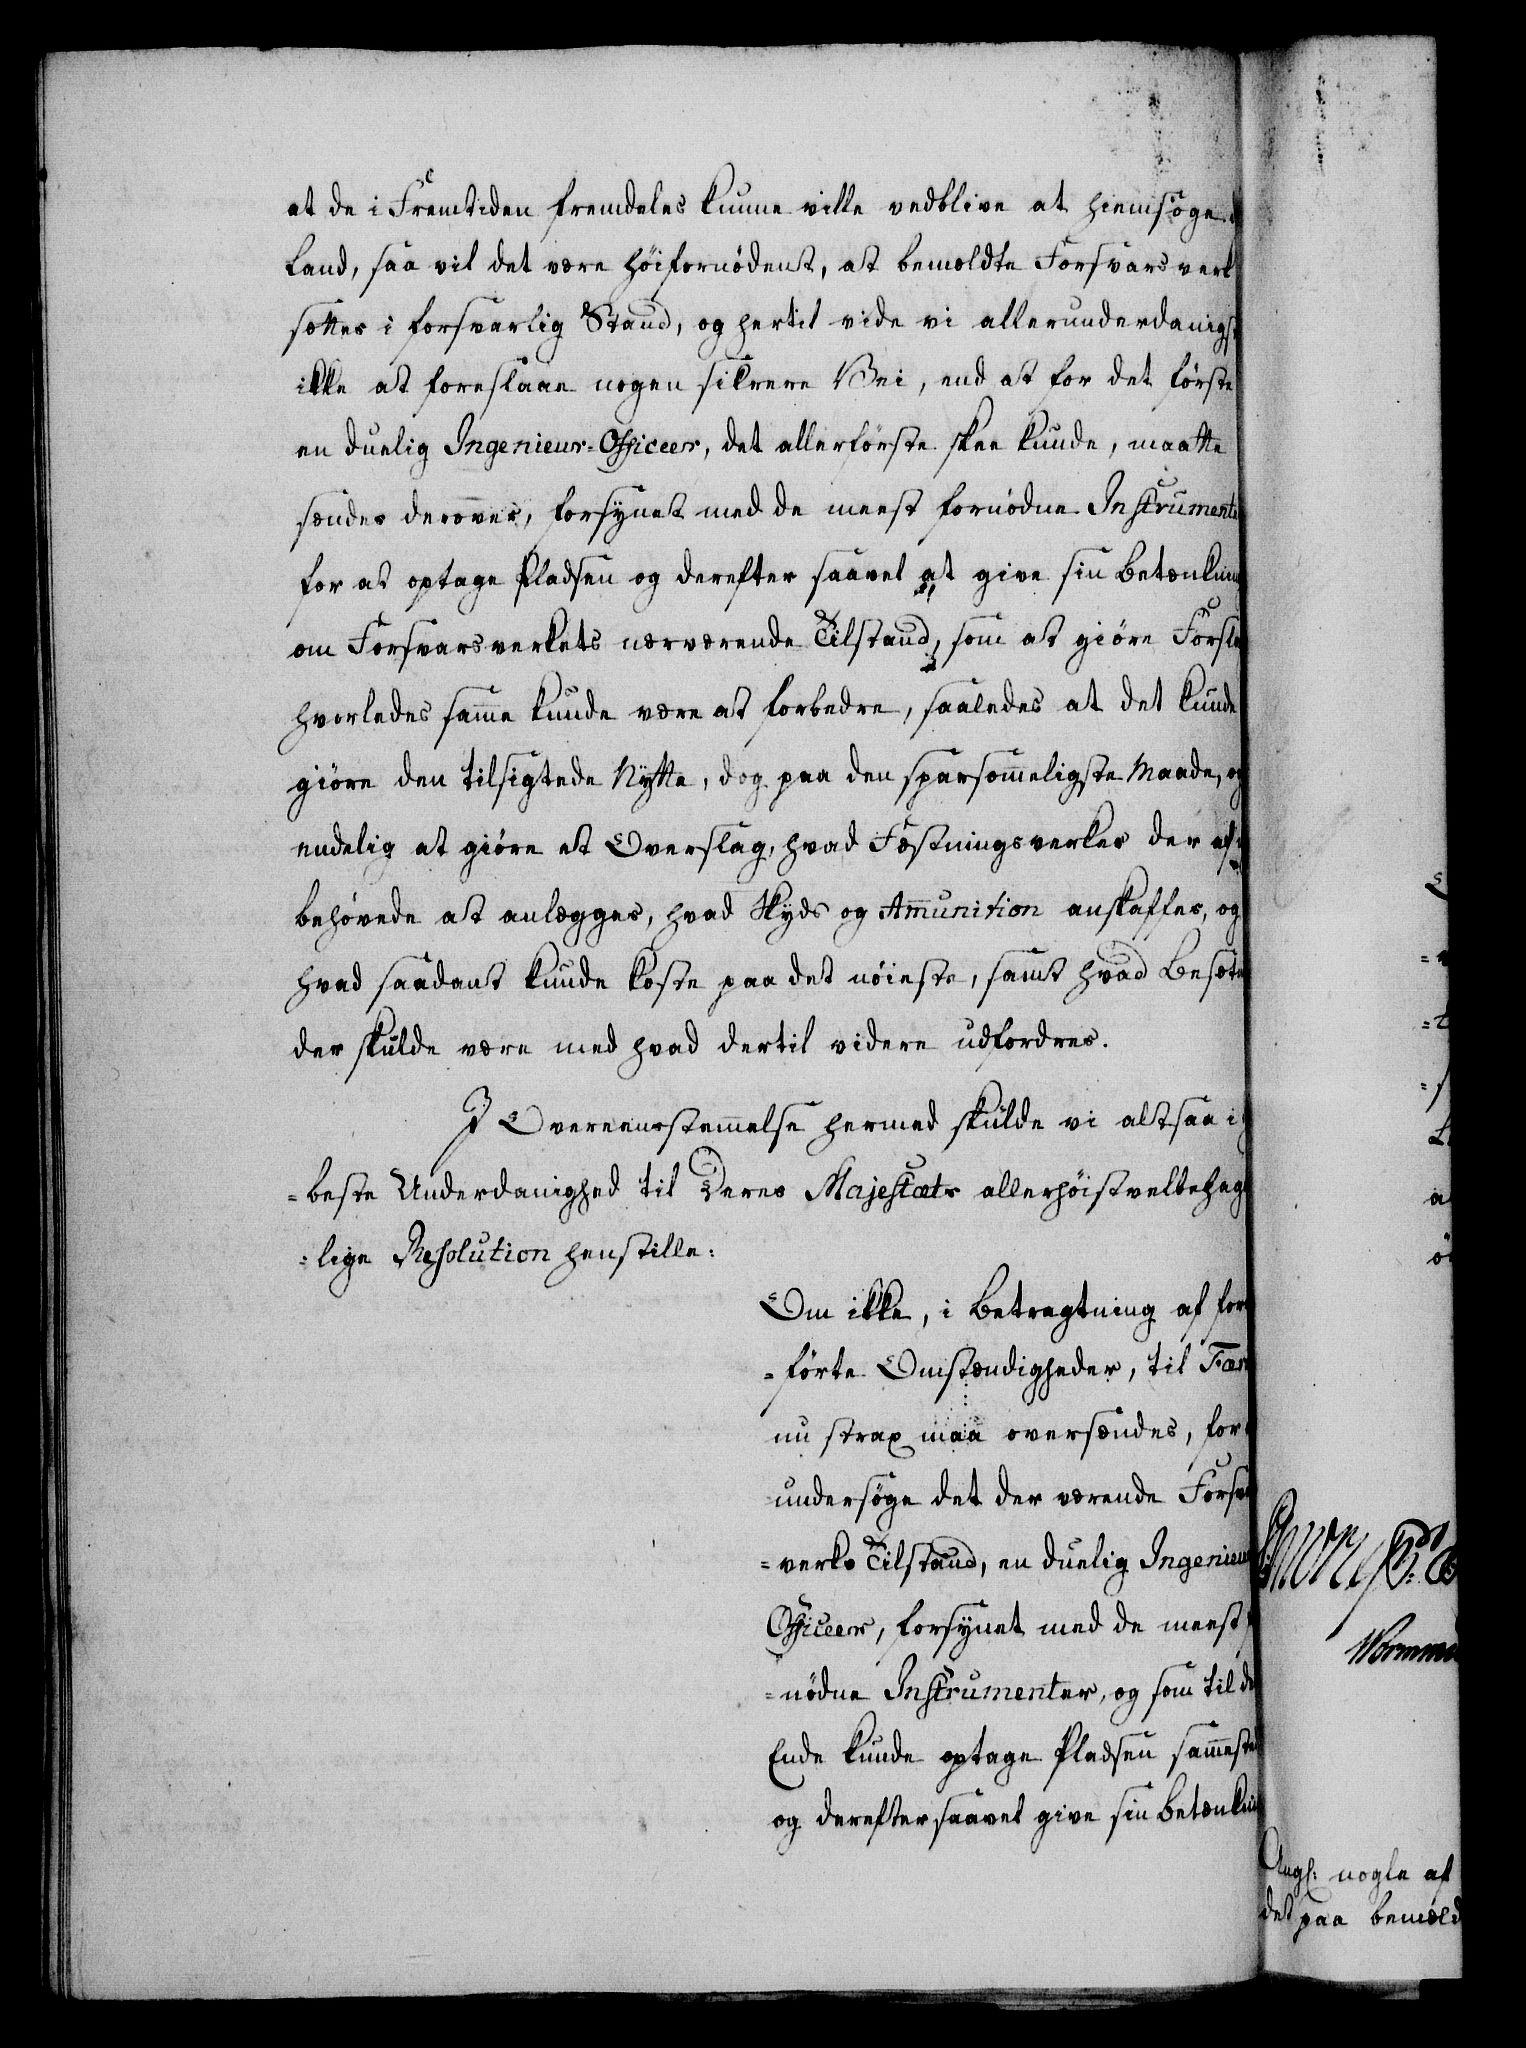 at de i Fremtiden fremdeles kunne ville vedblive at hiemsøge
Land, saa vil det være høifornødent, at bemældte Forsvarsverk
sættes i forsvarlig Stand, og hertil vide vi allerunderdanigst
ikke at foreslaae nogen sikrere Vei, end at for det første
en duelig Ingenieur-Officeer, det allerførste skee kunde, maatte
sendes derover, forsynet med de meest fornødne Instrumente
for at optage Pladsen og derefter saavel at give sin Betænkning
om Forsvarsverkets nærværende Tilstand, som at giøre Forsla
hvorledes samme kunde være at forbedre, saaledes at det kunde
giøre den tilsigtede Nytte, dog paa den sparsommeligste Maade, og
endelig at giøre et Overslag, hvad Fæstningsverker der af
behøvede at anlægges, hvad Skyds og Ammunition anskaffes, og
hvad saadant kunde koste paa det nøieste, samt hvad Besæt
der skulde være med hvad dertil videre udfordres.
I Overeensstemmelse hermed skulde vi altsaa i
=beste Underdanighed til Deres Majestæts allerhøistvelbehag
=lige Resolution henstille:
Om ikke, i Betragtning af for
=førte Omstændigheder, til Fær
nu strax maa oversendes, for
undersøge det der værende Forsv
=verks Tilstand, en duelig Ingenieur
Officeer, forsynet med de meest
=nødne Instrumenter, og som til de
Ende kunde optage Pladsen sammested
og derefter saavel give sin Betænkni
Angl: nogle af
det paa bemeld